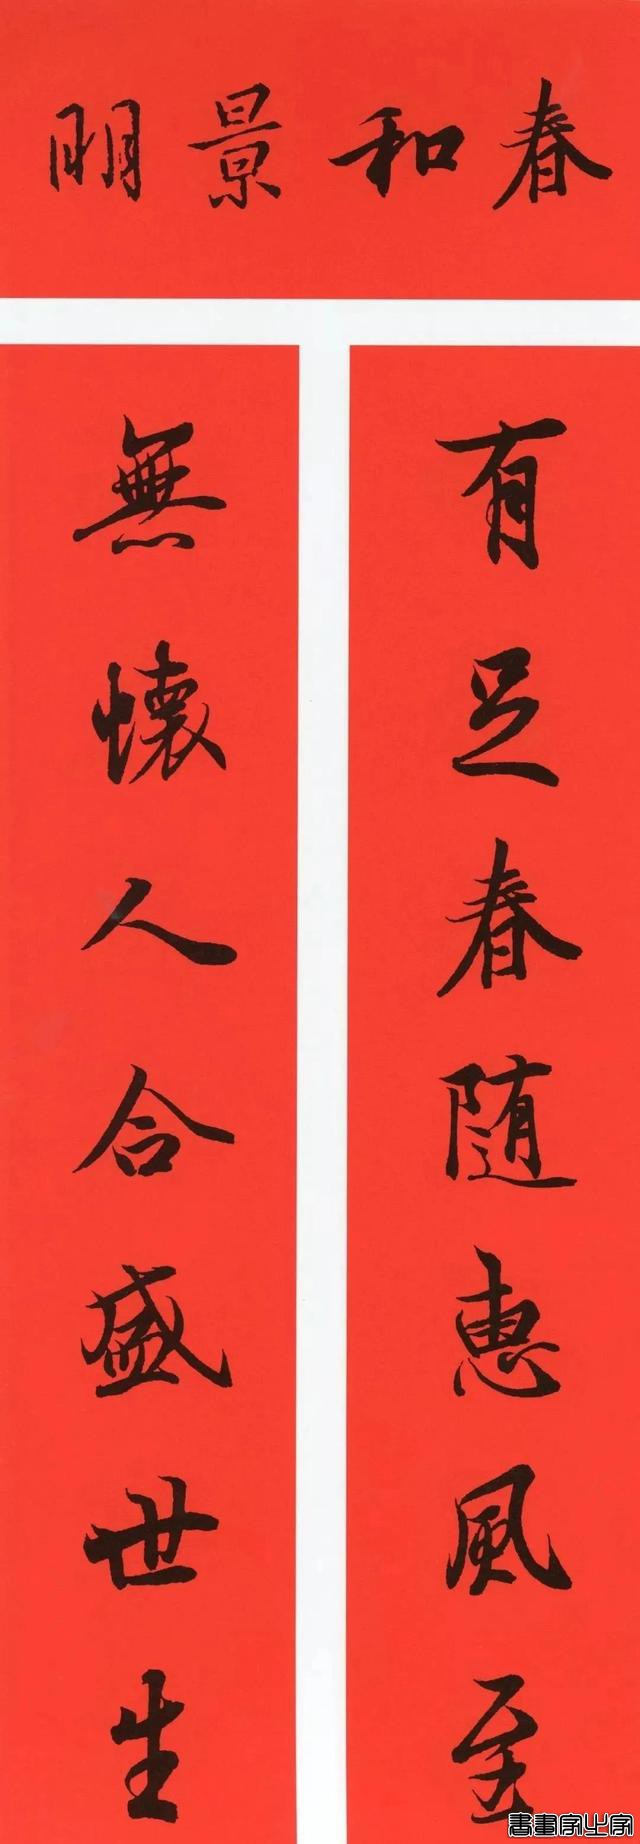 春和景明
有足春随惠風至
無懐人合盛世生
書畫家之家